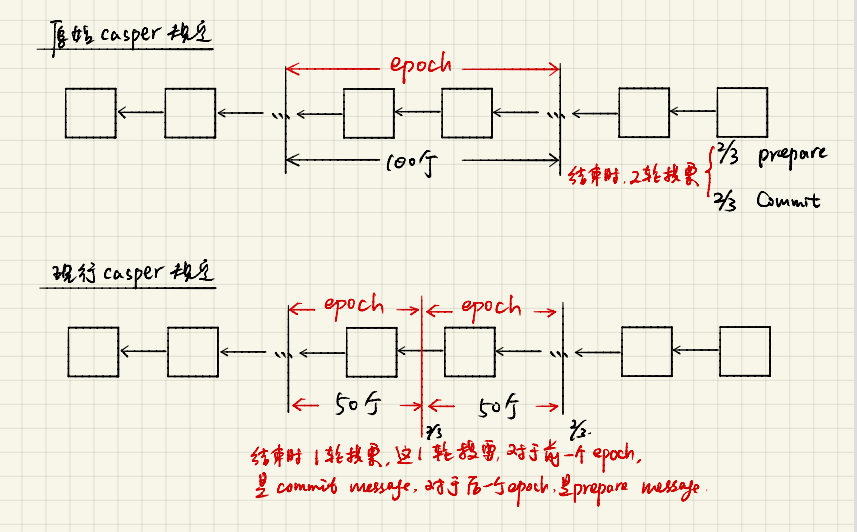 原始casper规定
epoch
100个
结束时,2轮投票
2/3 prepare
2/3 Commit
现行casper规定
epoch epoch
50个 50个
2/3 2/3.
结束时1轮投票,这1轮投票,对于前一个epoch,
是commit message,对于后一个epoch,是prepare message.